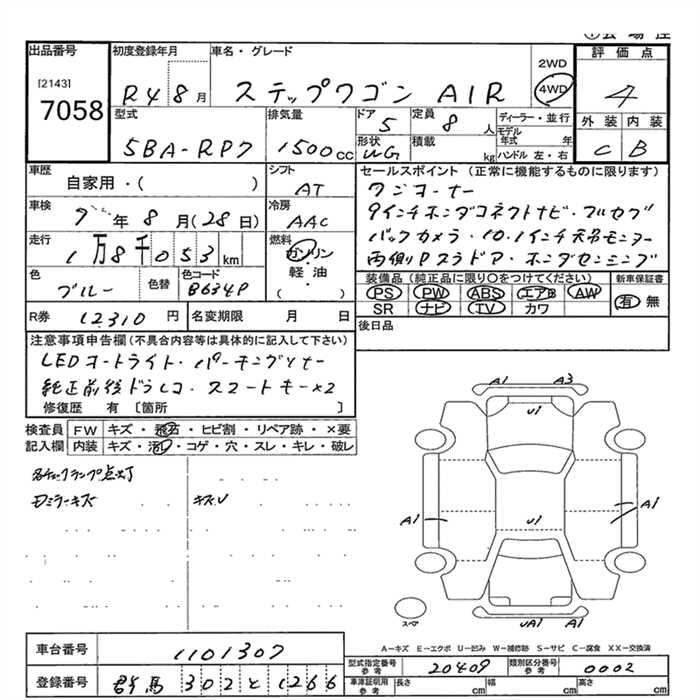 出品番号
[2143]
7058
初度登録年月
R4 8月
車名・グレード
ステップワゴン AIR
2WD
4WD
評価点
4
外装 内装
C B
型式
5BA-RP7
排気量
1500cc
ドア
5
形状
WG
定員
8人
積載
kg
ディーラー・並行
モデル年式 年
ハンドル 左・右
車歴
自家用・( )
シフト
AT
車検
7年8月(28日)
冷房
AAC
走行
1万8千053km
燃料
ガソリン・軽油・( )
色
ブルー
色替
色コード
B634P
R券 12310円
名変期限 月 日
セールスポイント(正常に機能するものに限ります)
ワンオーナー
9インチホンダコネクトナビ・フルセグ
バックカメラ・10.1インチ天吊モニター
両側Pスラドア・ホンダセンシング
装備品(純正品に限り○をつけてください)
PS PW ABS エアB AW
SR ナビ TV カワ
新車保証書
有 無
後日品
注意事項申告欄(不具合内容等は具体的に記入して下さい)
LEDオートライト・パーキングソナー
純正前後ドラレコ・スマートキー×2
修復歴 有 [箇所 ]
検査員記入欄
FW キズ・飛石・ヒビ割・リペア跡・×要
内装 キズ・汚レ・コゲ・穴・スレ・キレ・破レ
ランプ点灯
ミラーキズ
キズU
A1 A3
U1
A1
U1
A1
UA1 A1
スペア
A-キズ E-エクボ U-凹み W-補修跡 S-サビ C-腐食 XX-交換済
車台番号 1101307
登録番号 群馬 302 と 1266
型式指定番号 参考 20409
類別区分番号 参考 0002
車庫証明用 参考 長さ cm 幅 cm 高さ cm